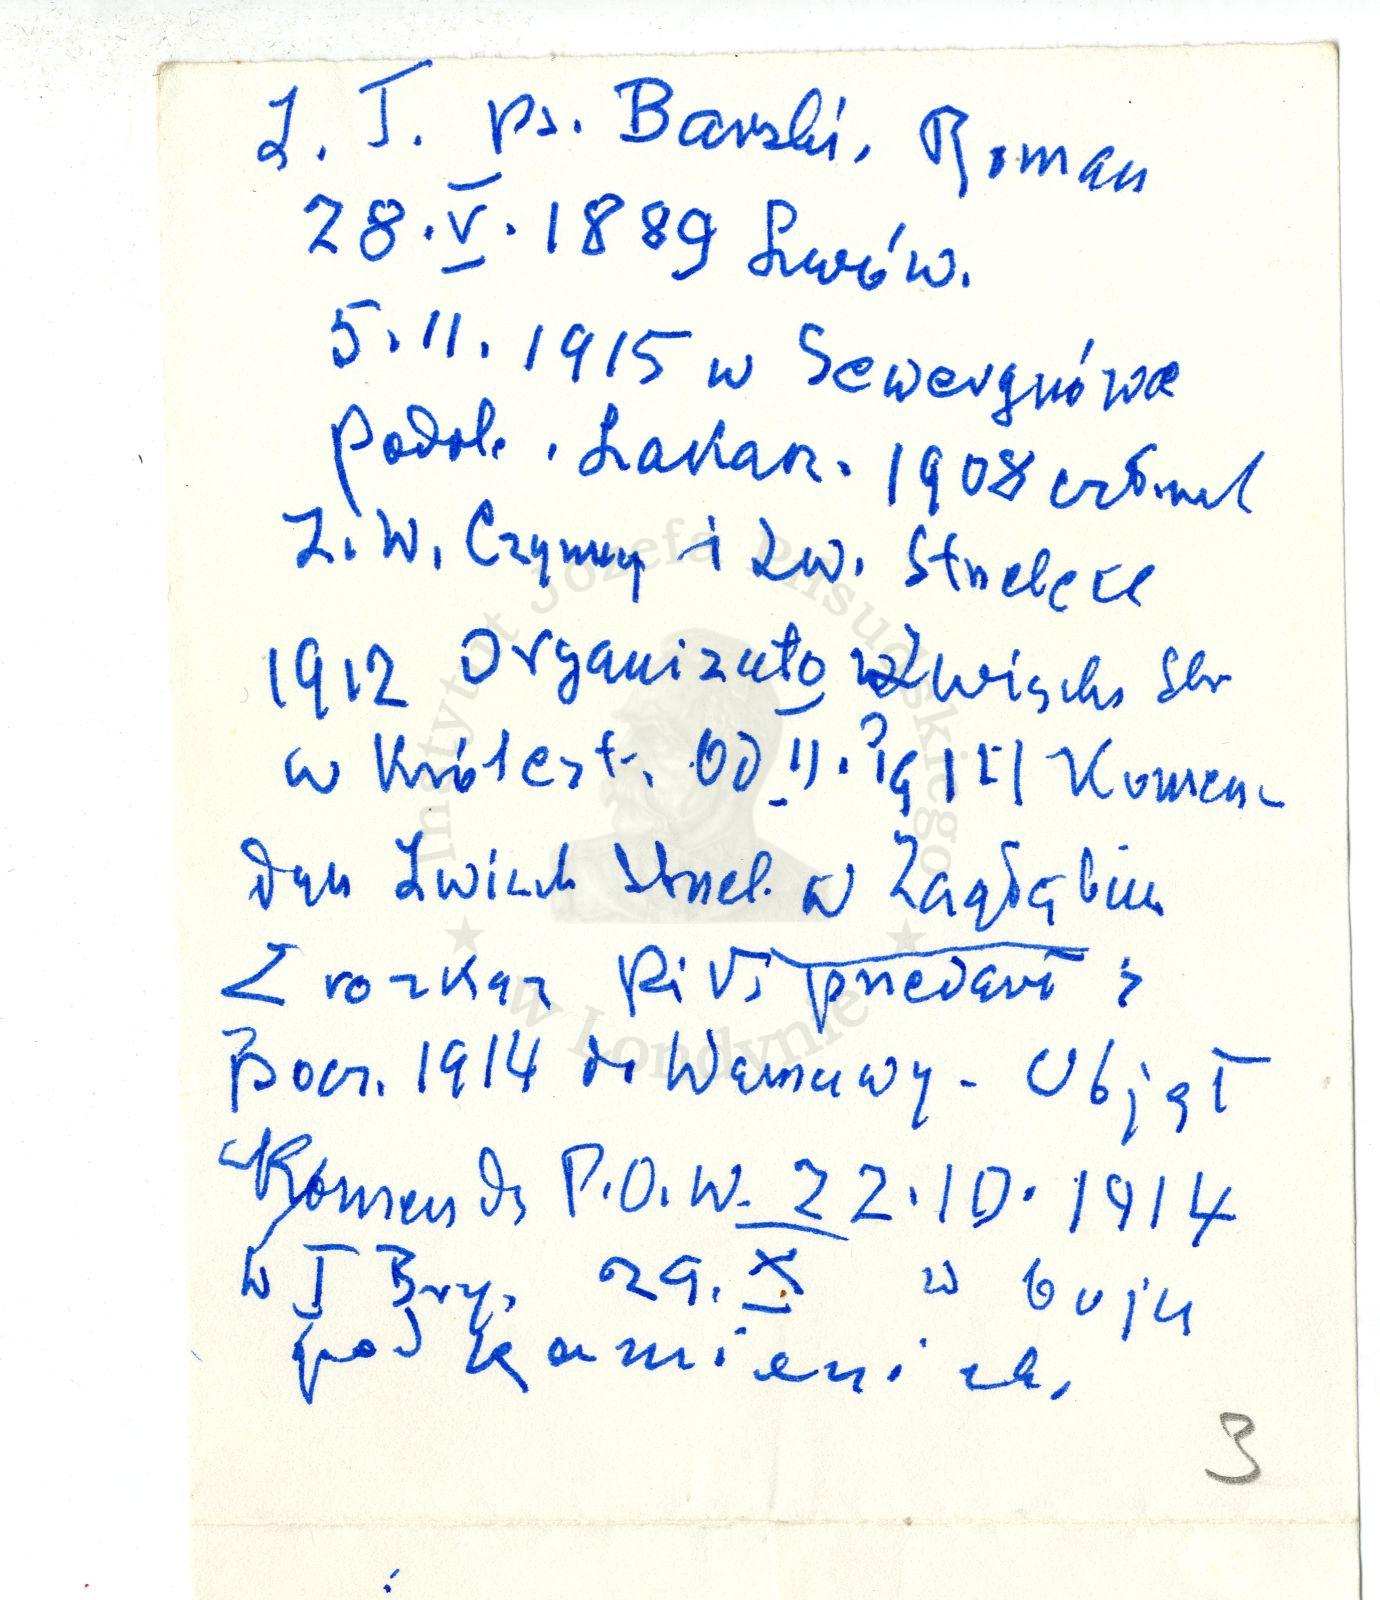 Ż. T. ps. Barski, Roman
28.V.1889 Lwów.
5.11.1915 w Sewerynówce
Podol. Zakaz. 1908 członek
Z.W. Czynnej i Zw. Strzelece
1912 Organizato Związku Str
w Królest. Od II. ? 191 Komen-
dan Związk Strzel. w Zagłębiu
Z rozkaz Piłs przedarł s
pocz. 1914 do Warszawy - Objął
Komendę P.O.W. 22.10.1914
w I Bry. 29.X w boju
pod Kamienich.
3
Instytut Józefa Piłsudskiego
w Londynie